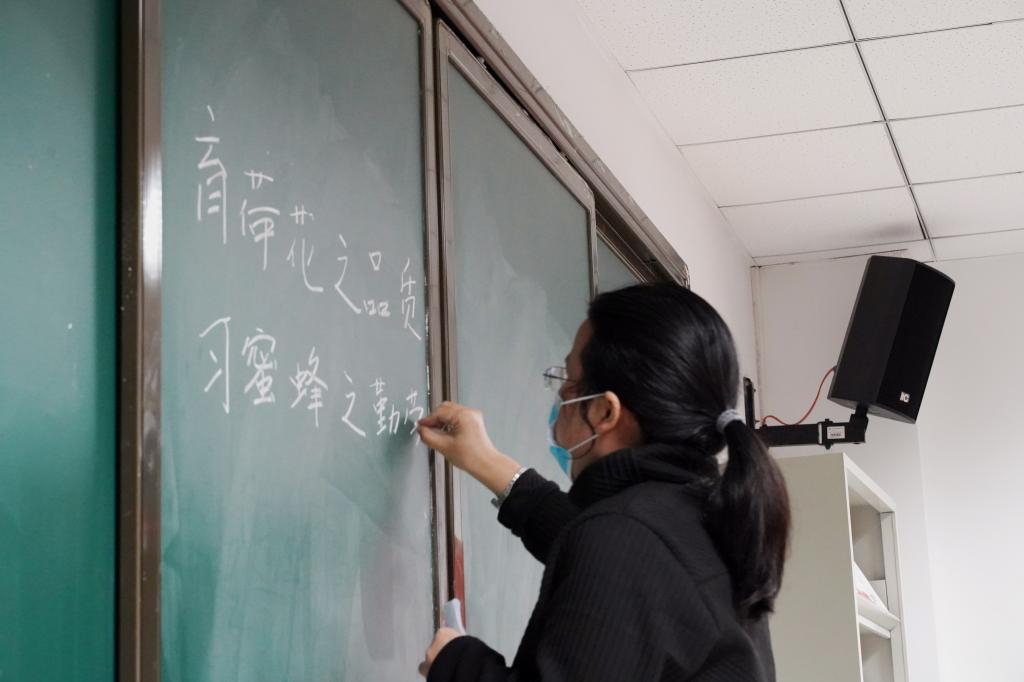 育荷花之品质
习蜜蜂之勤劳